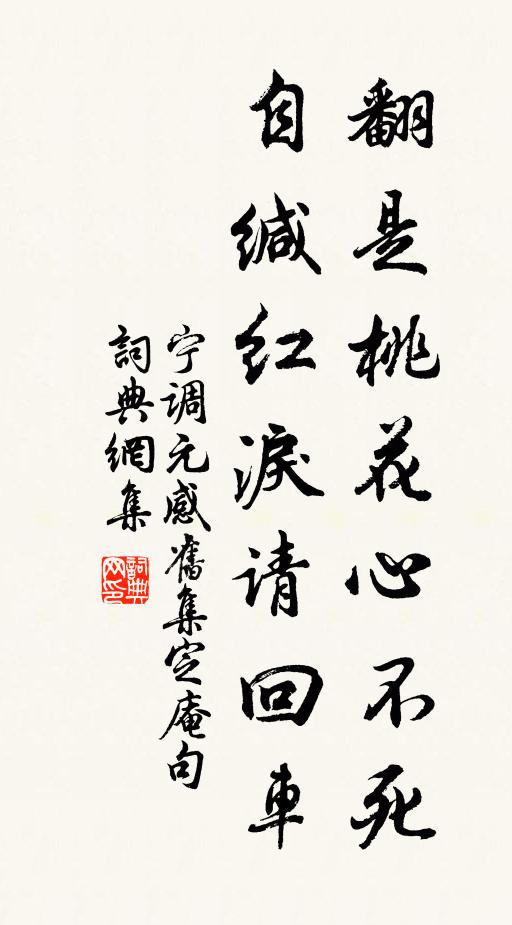 翻是桃花心不死
自缄红淚请回車
宁调元感舊集定庵句
詞典網集
詞典网印